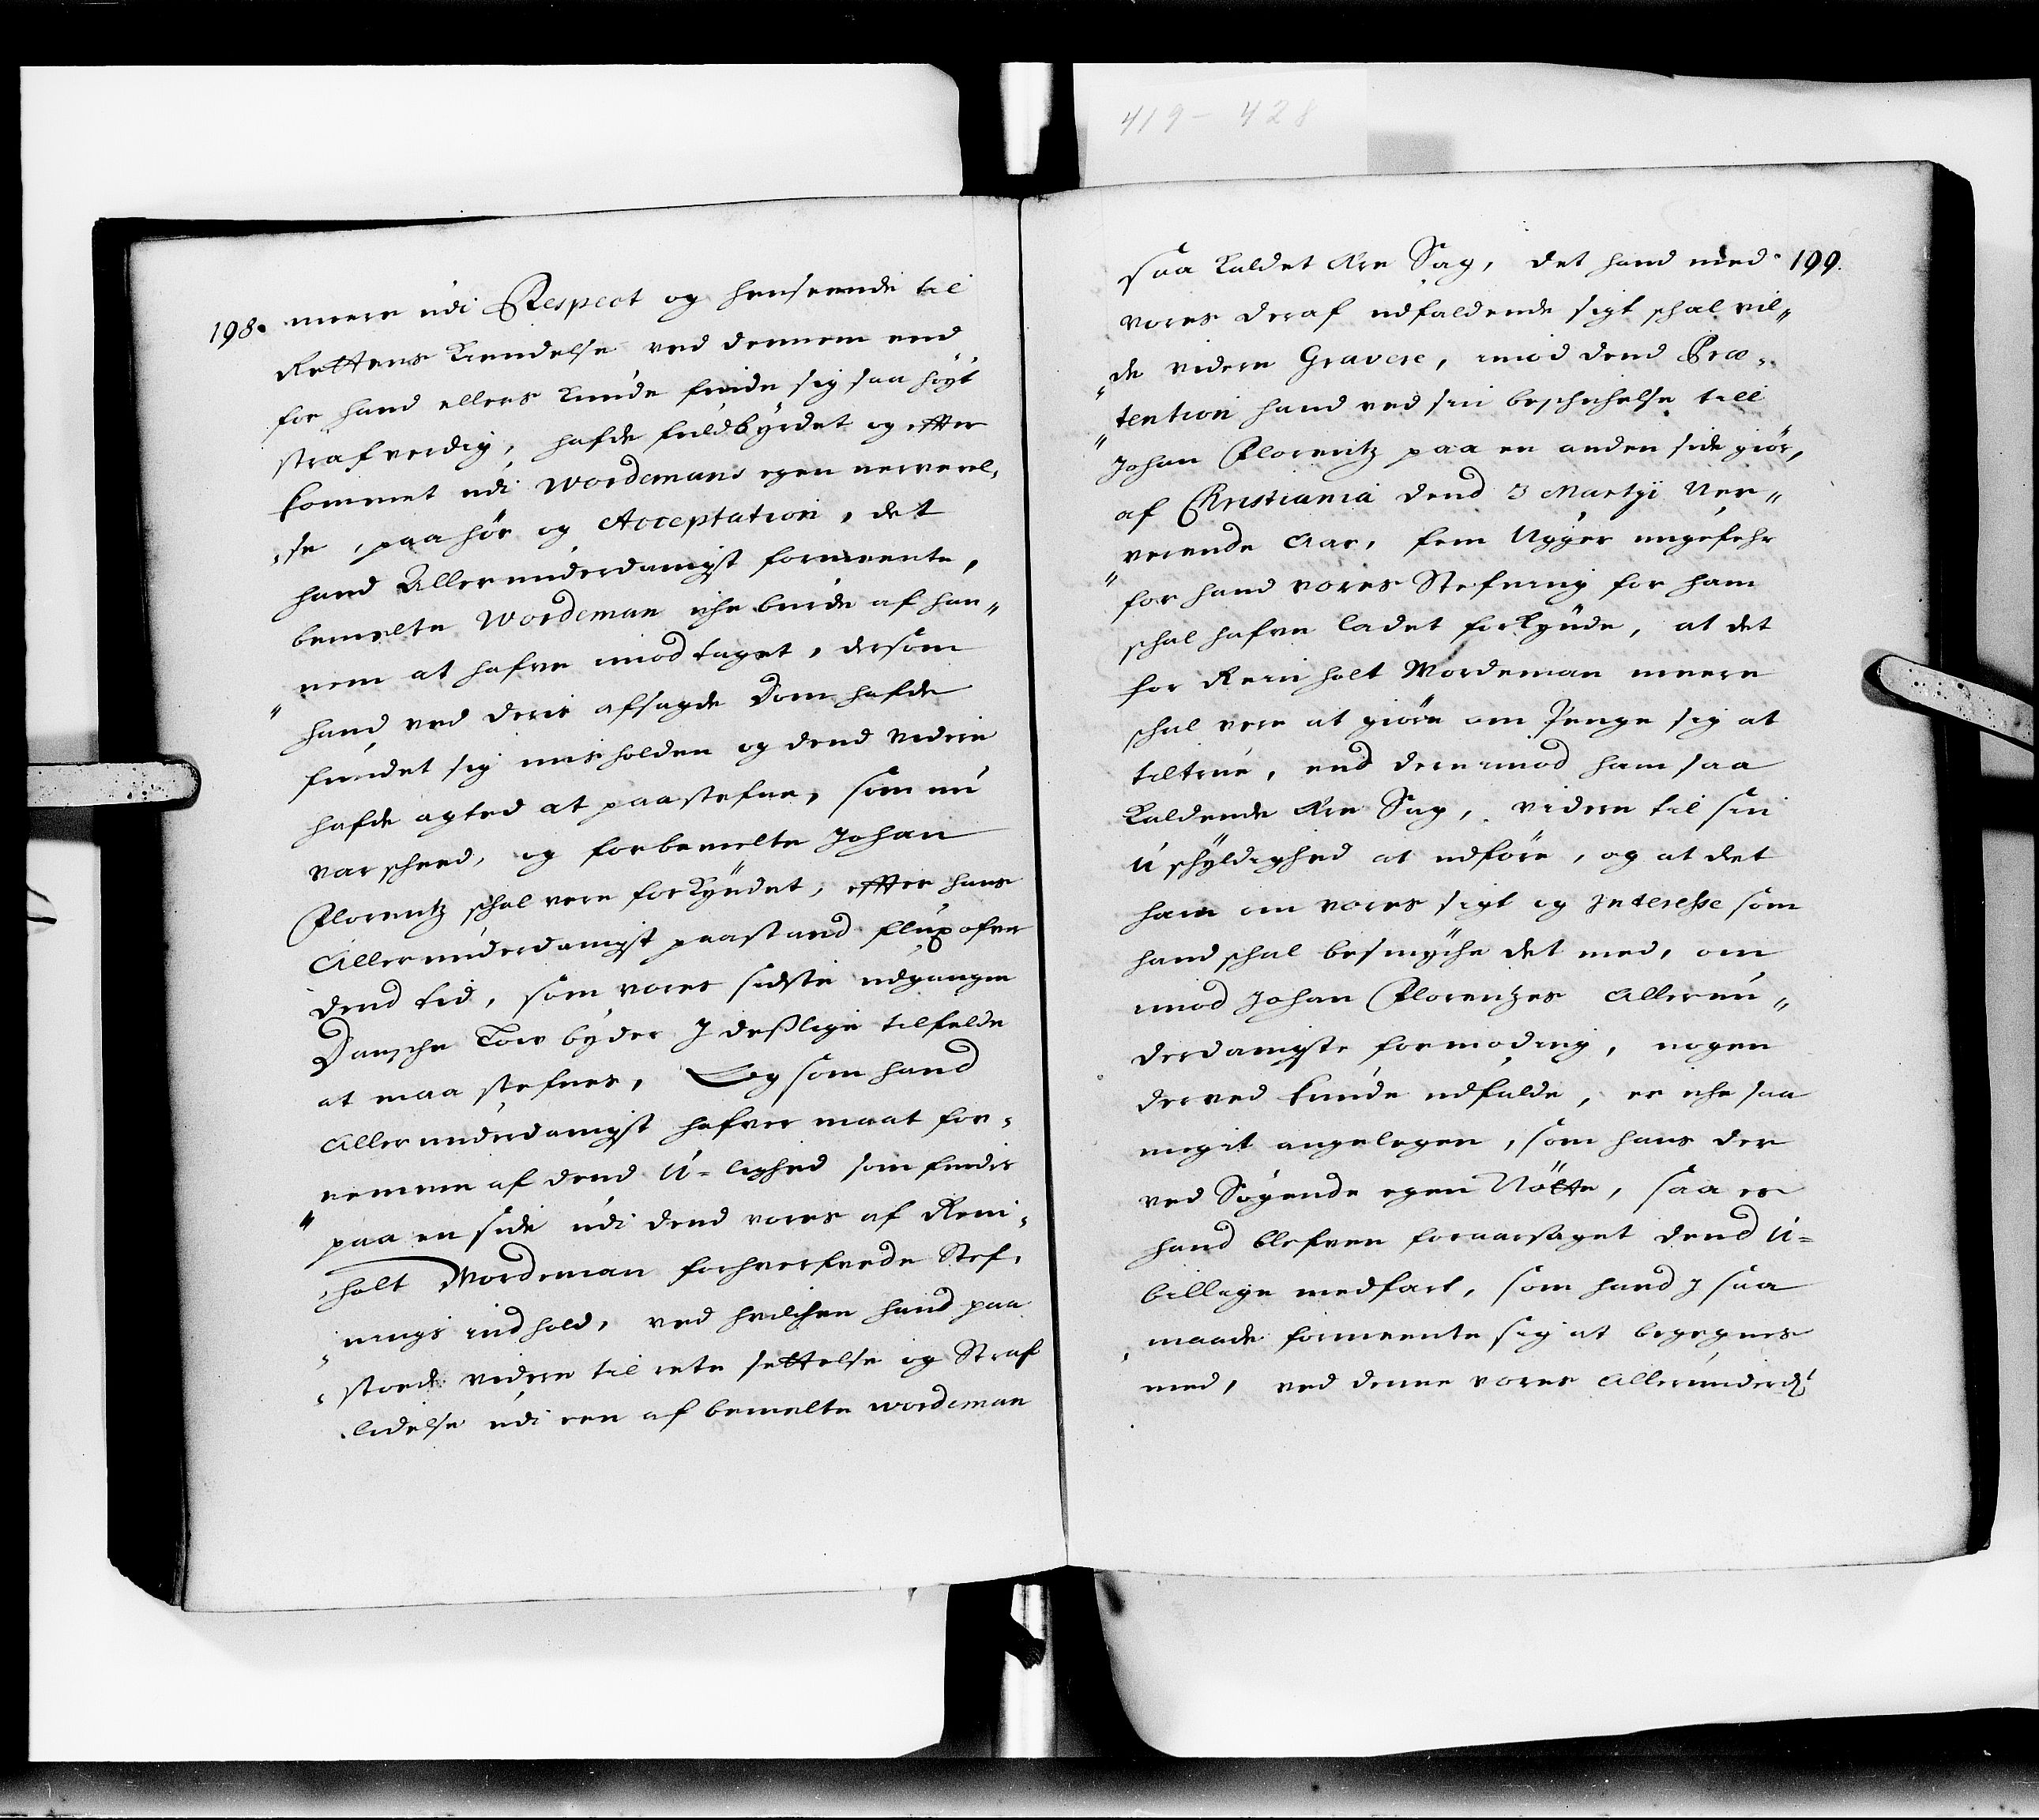 419 - 428
198. meere udi Respect og henseende til
Rettens Kiendelse ved dennem end
for hand ellers kunde finde sig saa høyt
strafverdig, hafde fuldbyrdet og effter
kommet udi Wordemans egen nerverel„
„se, paahør og Acceptation, det
hand Allerunderdanigst formeente,
bemelte Wordeman iche burde af han„
nem at hafve imodtaget, dersom
„hand ved deris afsagde Dom hafde
fundet sig misholden og dend videre
hafde agted at paastefne, som nu
var scheed, og forbemelte Johan
Florentz schal vere forkyndet, effter hans
Allerunderdanigst paastand flux ofver
dend tid, som vores sidste udgangne
Dansche Low byder J deslige tilfelde
at maa stefnes, Og som hand
Allerunderdanigst hafver maat for„
nemme af dend U-lighed som findis
„paa en side udi dend vores af Rein„
„holt Wordeman forhverfvede Stef„
„nings indhold, ved hvilchen hand paa
„stoed videre til rete settelse og Straf
„lidelse udi een af bemelte wordeman
saa kaldet Ære Sag, det hand med 199.
vores deraf udfaldende sigt schal vil„
„de videre Gravere, imod dend Præ„
„tention hand ved sin beschichelse till
Johan Florentz paa en anden side giør,
af Christiania dend 3 Martij Ner„
„verende Aar, fem Uger ungefehr
for hand vores Stefning for ham
schal hafve ladet forkynde, at det
for Reinholt Wordeman meere
schal vere at giøre om Penge sig at
tiltrue, end derimod ham saa
kaldende Ære Sag, videre til sin
uschyldighed at udføre, og at det
ham om vores sigt og Interesse som
hand schal besmyche det med, om
imod Johan Florentzes Allerun„
derdanigste formoding, nogen
derved kunde udfalde, er iche saa
megit angelegen, som hans der
ved Søgende egen Nøtte, saa er
hand blefven foraarsaget dend U-
billige medfart, som hand J saa
„maade formeente sig at begegnes
med, ved denne vores Allerunderd: